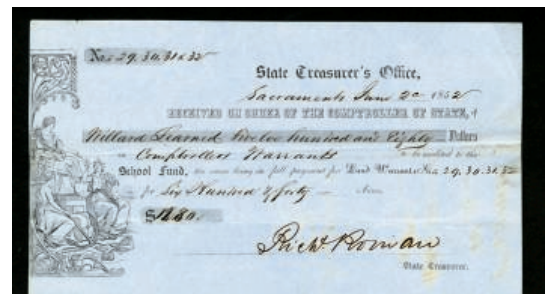 Nos 29, 30, 31 & 32
State Treasurer's Office,
Sacramento Jany 2d 1852
RECEIVED ON ORDER OF THE COMPTROLLER OF STATE, of
Willard Learned Twelve hundred and Eighty Dollars
in Comptrollers Warrants to be credited to the
School Fund, the same being in full payment for Land Warrants Nos 29, 30, 31, 32
for Six Hundred & forty Acres
$1280.
Richd. Roman
State Treasurer.